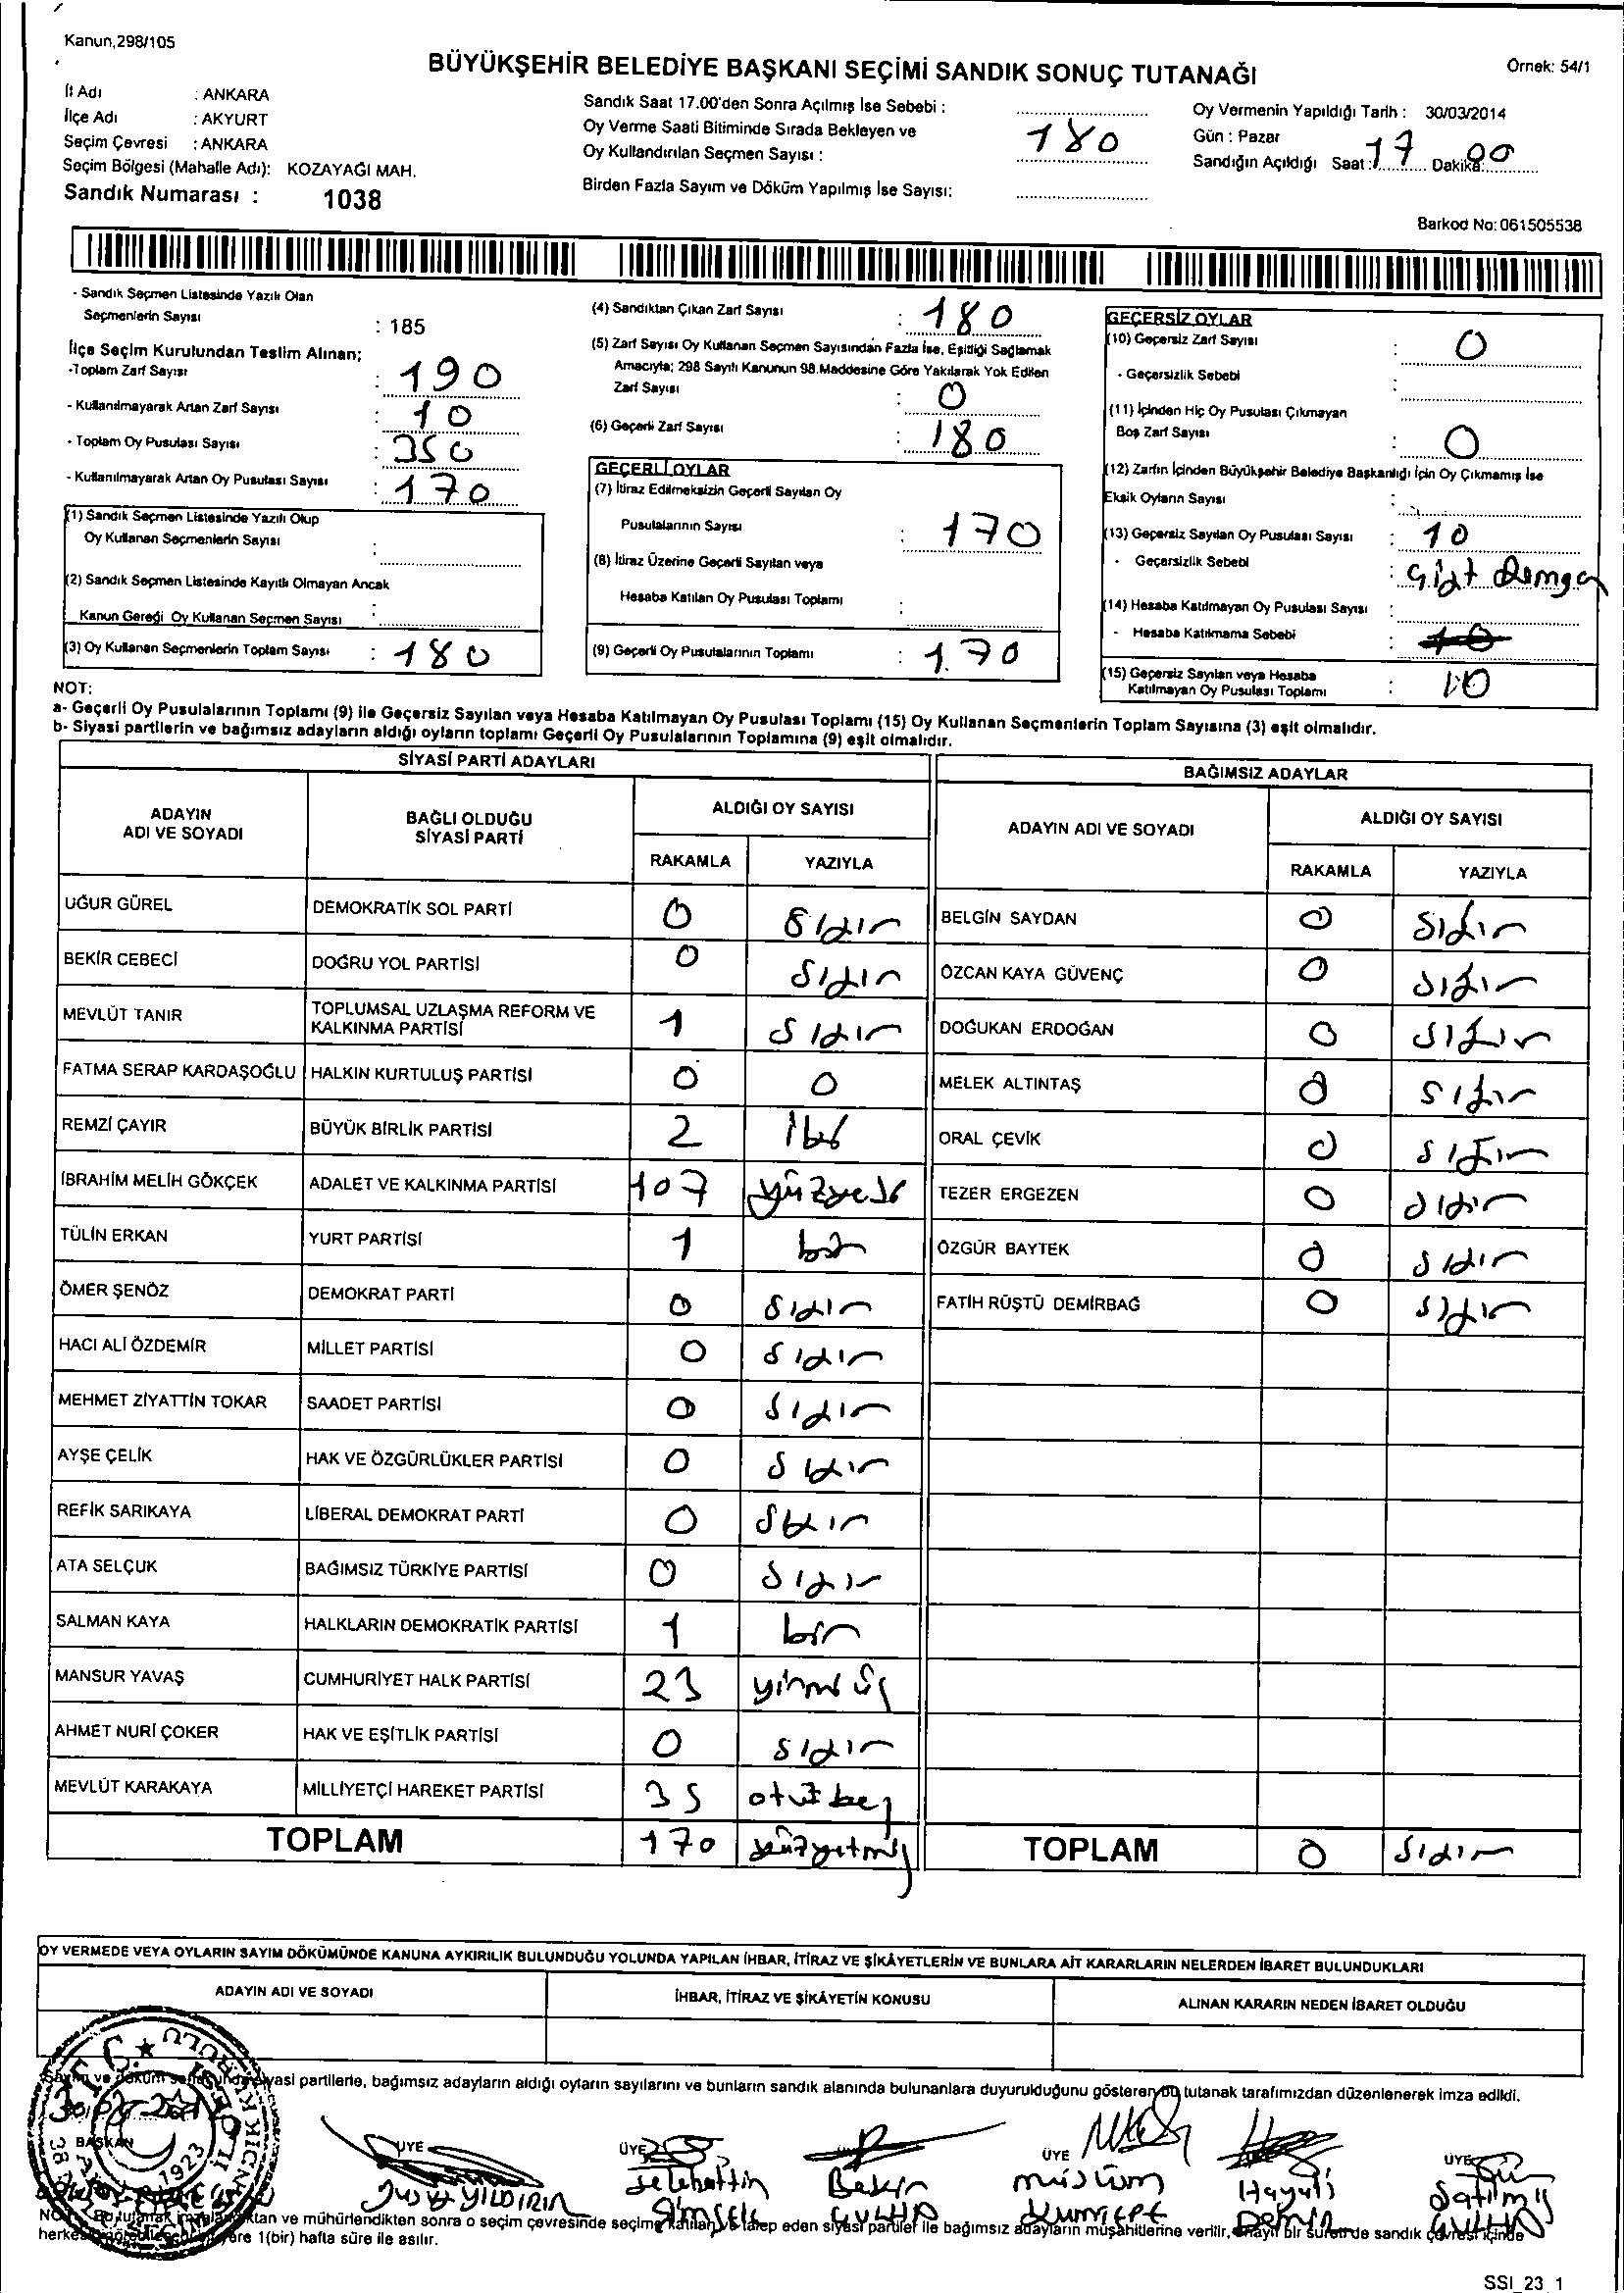 Kanun,298/105
BÜYÜKŞEHİR BELEDİYE BAŞKANI SEÇİMİ SANDIK SONUÇ TUTANAĞI
Örnek: 54/1
İl Adı : ANKARA
İlçe Adı : AKYURT
Seçim Çevresi : ANKARA
Seçim Bölgesi (Mahalle Adı): KOZAYAĞI MAH.
Sandık Numarası : 1038
Sandık Saat 17.00'den Sonra Açılmış İse Sebebi :
Oy Verme Saati Bitiminde Sırada Bekleyen ve
Oy Kullandırılan Seçmen Sayısı : 180
Birden Fazla Sayım ve Döküm Yapılmış İse Sayısı:
Oy Vermenin Yapıldığı Tarih : 30/03/2014
Gün : Pazar
Sandığın Açıldığı Saat : 17 Dakika: 00
Barkod No: 061505538
- Sandık Seçmen Listesinde Yazılı Olan
Seçmenlerin Sayısı : 185
İlçe Seçim Kurulundan Teslim Alınan;
-Toplam Zarf Sayısı : 190
- Kullanılmayarak Artan Zarf Sayısı : 10
- Toplam Oy Pusulası Sayısı : 350
- Kullanılmayarak Artan Oy Pusulası Sayısı : 170
(1) Sandık Seçmen Listesinde Yazılı Olup
Oy Kullanan Seçmenlerin Sayısı :
(2) Sandık Seçmen Listesinde Kayıtlı Olmayan Ancak
Kanun Gereği Oy Kullanan Seçmen Sayısı :
(3) Oy Kullanan Seçmenlerin Toplam Sayısı : 180
(4) Sandıktan Çıkan Zarf Sayısı : 180
(5) Zarf Sayısı Oy Kullanan Seçmen Sayısından Fazla İse, Eşitliği Sağlamak
Amacıyla; 298 Sayılı Kanunun 98.Maddesine Göre Yakılarak Yok Edilen
Zarf Sayısı : 0
(6) Geçerli Zarf Sayısı : 180
GEÇERLİ OYLAR
(7) İtiraz Edilmeksizin Geçerli Sayılan Oy
Pusulalarının Sayısı : 170
(8) İtiraz Üzerine Geçerli Sayılan veya
Hesaba Katılan Oy Pusulası Toplamı :
(9) Geçerli Oy Pusulalarının Toplamı : 170
GEÇERSİZ OYLAR
(10) Geçersiz Zarf Sayısı : 0
- Geçersizlik Sebebi :
(11) İçinden Hiç Oy Pusulası Çıkmayan
Boş Zarf Sayısı : 0
(12) Zarfın İçinden Büyükşehir Belediye Başkanlığı İçin Oy Çıkmamış İse
Eksik Oyların Sayısı :
(13) Geçersiz Sayılan Oy Pusulası Sayısı : 10
- Geçersizlik Sebebi : Çift Damga
(14) Hesaba Katılmayan Oy Pusulası Sayısı :
- Hesaba Katılmama Sebebi : 10
(15) Geçersiz Sayılan veya Hesaba
Katılmayan Oy Pusulası Toplamı : 10
NOT:
a- Geçerli Oy Pusulalarının Toplamı (9) ile Geçersiz Sayılan veya Hesaba Katılmayan Oy Pusulası Toplamı (15) Oy Kullanan Seçmenlerin Toplam Sayısına (3) eşit olmalıdır.
b- Siyasi partilerin ve bağımsız adayların aldığı oyların toplamı Geçerli Oy Pusulalarının Toplamına (9) eşit olmalıdır.
SİYASİ PARTİ ADAYLARI BAĞIMSIZ ADAYLAR
ADAYIN ADI VE SOYADI BAĞLI OLDUĞU SİYASİ PARTİ ALDIĞI OY SAYISI ADAYIN ADI VE SOYADI ALDIĞI OY SAYISI
RAKAMLA YAZIYLA RAKAMLA YAZIYLA
UĞUR GÜREL DEMOKRATİK SOL PARTİ 0 sıfır BELGİN SAYDAN 0 sıfır
BEKİR CEBECİ DOĞRU YOL PARTİSİ 0 sıfır ÖZCAN KAYA GÜVENÇ 0 sıfır
MEVLÜT TANIR TOPLUMSAL UZLAŞMA REFORM VE KALKINMA PARTİSİ 1 sıfır DOĞUKAN ERDOĞAN 0 sıfır
FATMA SERAP KARDAŞOĞLU HALKIN KURTULUŞ PARTİSİ 0 0 MELEK ALTINTAŞ 0 sıfır
REMZİ ÇAYIR BÜYÜK BİRLİK PARTİSİ 2 iki ORAL ÇEVİK 0 sıfır
İBRAHİM MELİH GÖKÇEK ADALET VE KALKINMA PARTİSİ 107 yüzyedi TEZER ERGEZEN 0 sıfır
TÜLİN ERKAN YURT PARTİSİ 1 bir ÖZGÜR BAYTEK 0 sıfır
ÖMER ŞENÖZ DEMOKRAT PARTİ 0 sıfır FATİH RÜŞTÜ DEMİRBAĞ 0 sıfır
HACI ALİ ÖZDEMİR MİLLET PARTİSİ 0 sıfır
MEHMET ZİYATTİN TOKAR SAADET PARTİSİ 0 sıfır
AYŞE ÇELİK HAK VE ÖZGÜRLÜKLER PARTİSİ 0 sıfır
REFİK SARIKAYA LİBERAL DEMOKRAT PARTİ 0 sıfır
ATA SELÇUK BAĞIMSIZ TÜRKİYE PARTİSİ 0 sıfır
SALMAN KAYA HALKLARIN DEMOKRATİK PARTİSİ 1 bir
MANSUR YAVAŞ CUMHURİYET HALK PARTİSİ 23 yirmi üç
AHMET NURİ ÇOKER HAK VE EŞİTLİK PARTİSİ 0 sıfır
MEVLÜT KARAKAYA MİLLİYETÇİ HAREKET PARTİSİ 35 otuz beş
TOPLAM 170 yüzyetmiş TOPLAM 0 sıfır
OY VERMEDE VEYA OYLARIN SAYIM DÖKÜMÜNDE KANUNA AYKIRILIK BULUNDUĞU YOLUNDA YAPILAN İHBAR, İTİRAZ VE ŞİKÂYETLERİN VE BUNLARA AİT KARARLARIN NELERDEN İBARET BULUNDUKLARI
ADAYIN ADI VE SOYADI İHBAR, İTİRAZ VE ŞİKÂYETİN KONUSU ALINAN KARARIN NEDEN İBARET OLDUĞU
Sayım ve döküm siyasi partilerle, bağımsız adayların aldığı oyların sayılarını ve bunların sandık alanında bulunanlara duyurulduğunu gösteren bu tutanak tarafımızdan düzenlenerek imza edildi.
BAŞKAN ÜYE ÜYE ÜYE ÜYE
T.C. 1923
YILDIRIM Selahattin Bekir Müslüm Hayati Satılmış
Şimşek Demir
ve mühürlendikten sonra o seçim çevresinde seçime katılan ve talep eden siyasi partiler ile bağımsız adayların müşahitlerine verilir, onaylı bir sureti de sandık çevresi içinde
1(bir) hafta süre ile asılır.
SSI_23_1